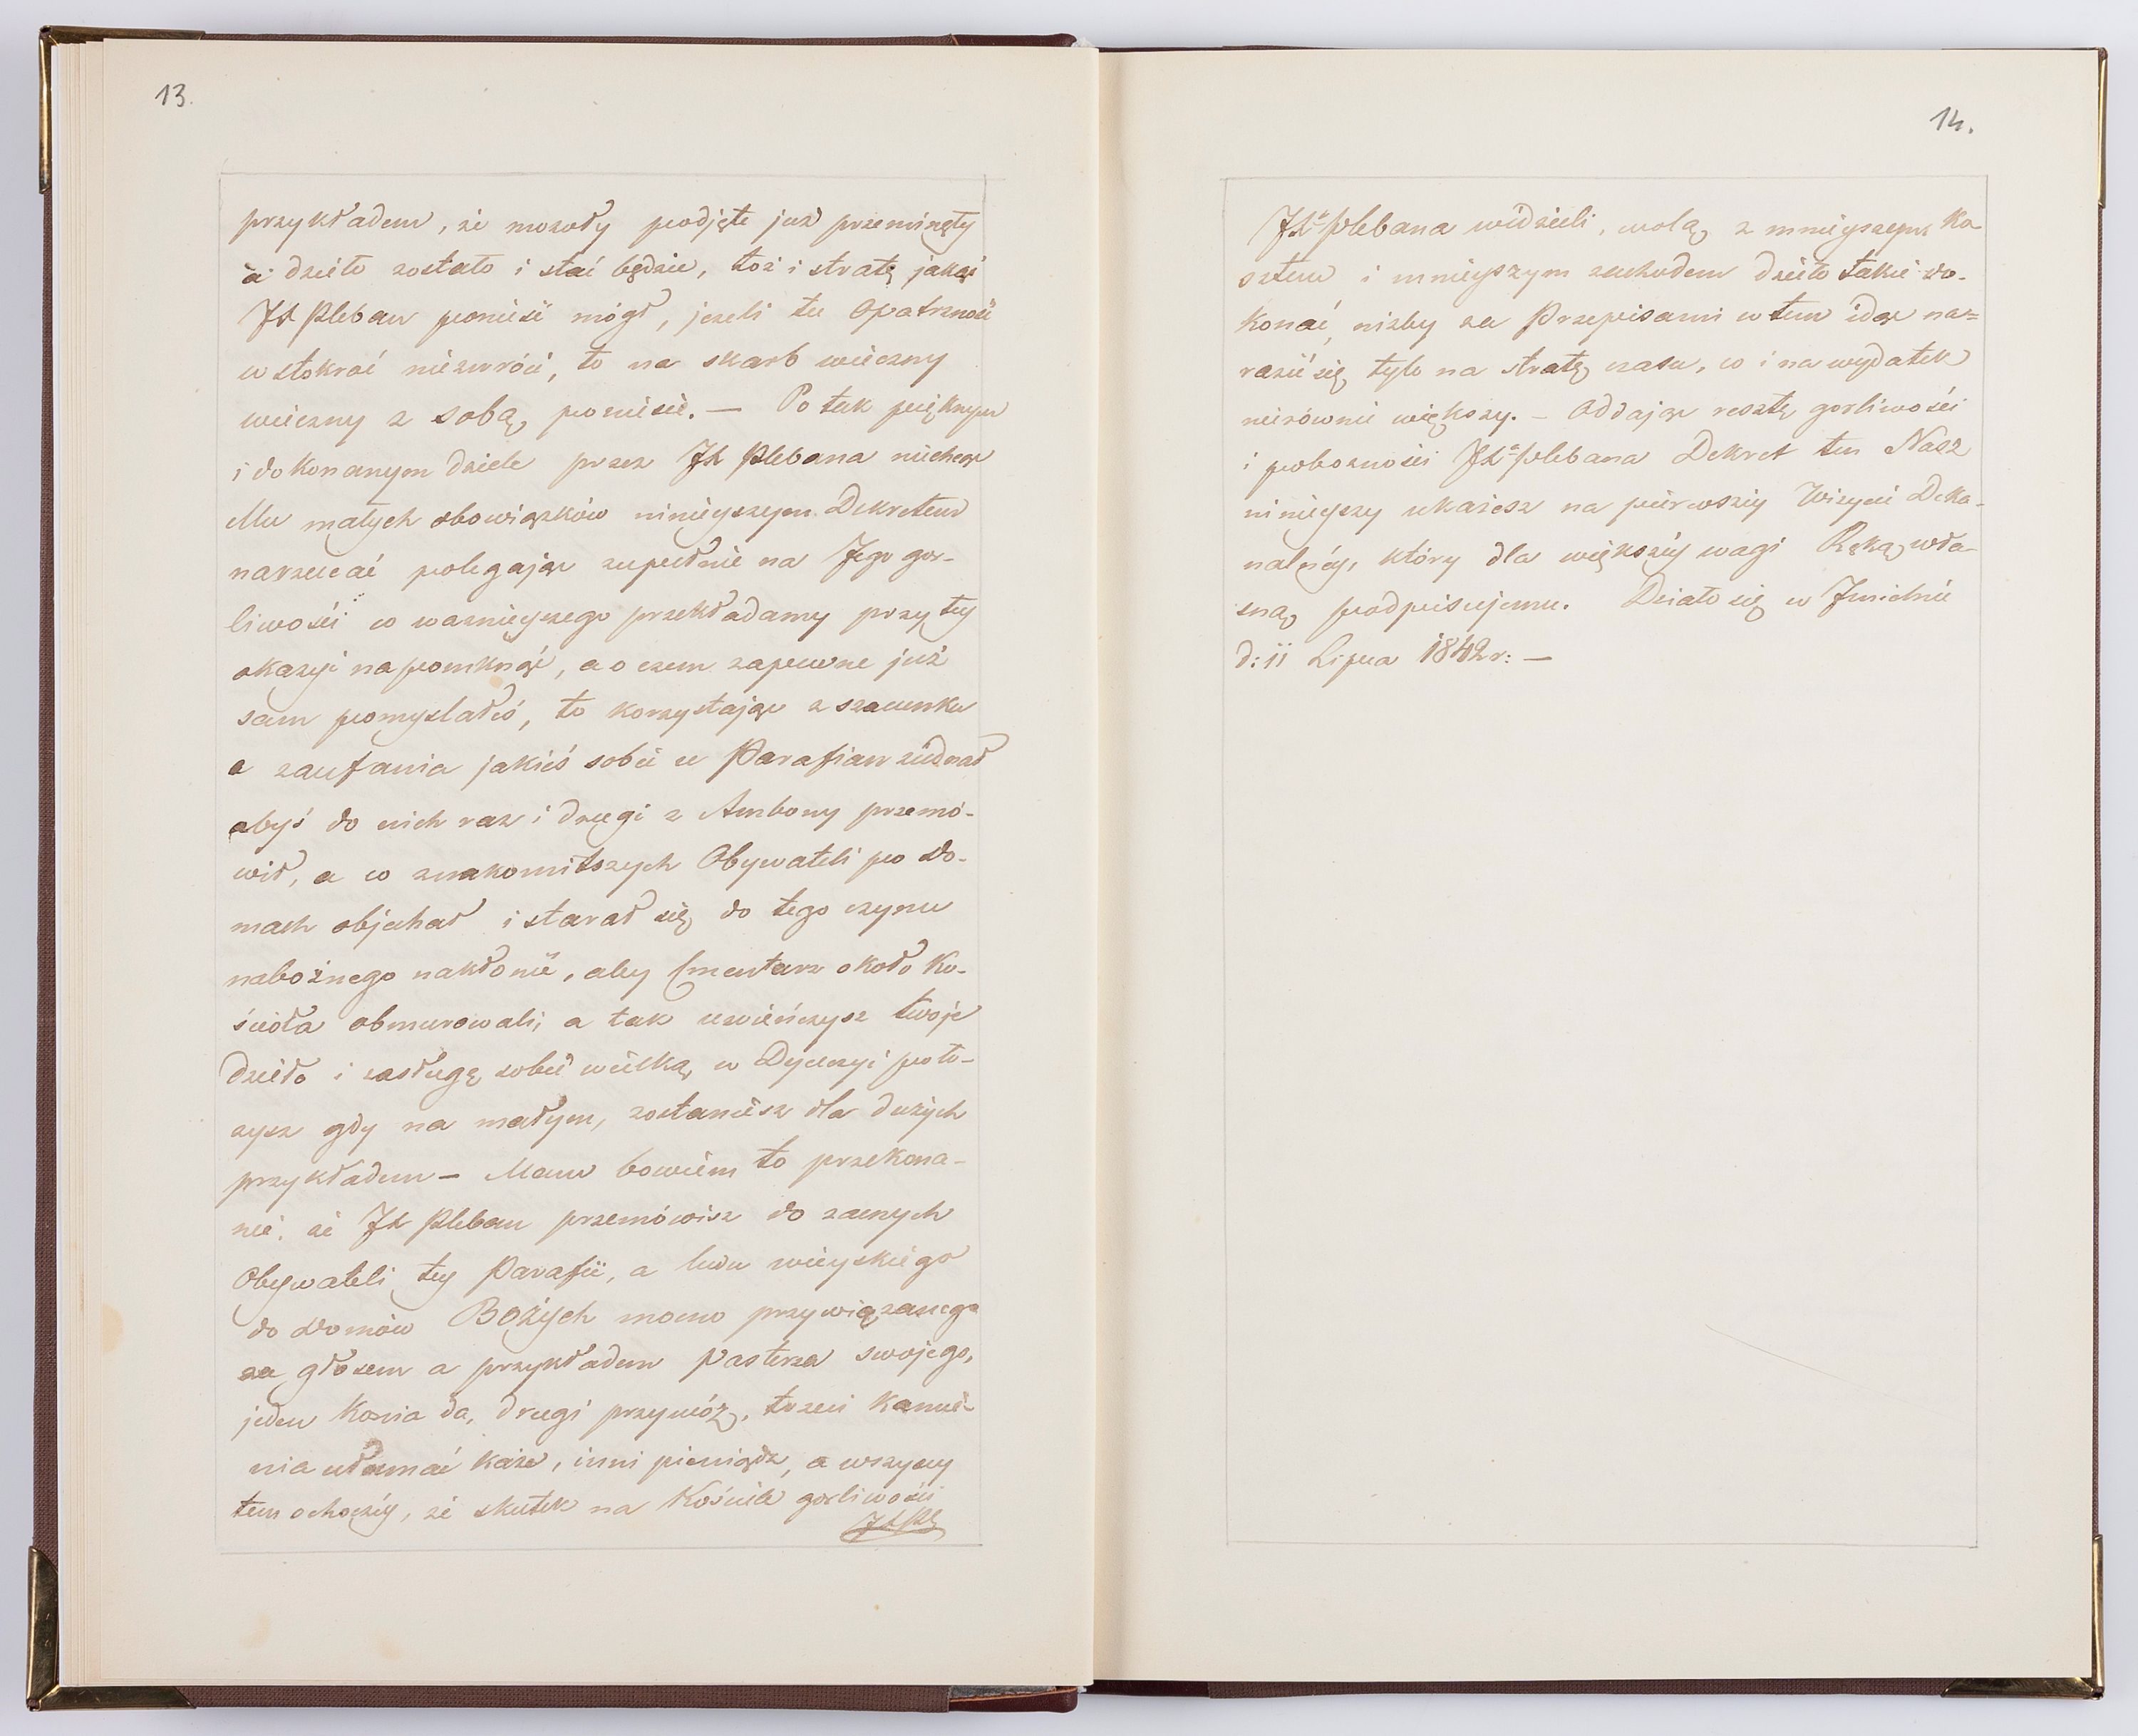 13.
przykładem, że mozoły podjęte już przeminęły
a dzieło zostało i stać będzie, toż i stratę jakąś
JX Pleban ponieść mógł, jeżeli tu Opatrzność
w stokroć niezwróci, to na skarb wieczny
wieczny z sobą poniesie. — Po tak pięknym
i dokonanym dziele przez JX Plebana niechcąc
Mu małych obowiązków ninieyszym Dekretem
narzucać polegając zupełnie na Jego gor-
liwości co ważnieyszego przekładamy przy tey
okazyi napomknąć, a o czem zapewne już
sam pomyslałeś, to korzystając z szacunku
a zaufania jakieś sobie u Parafian ziednał
abyś do nich raz i drugi z Ambony przemó-
wił, a co znakomitszych Obywateli po do-
mach objechał i starał się do tego czynu
nabożnego nakłonić, aby Cmentarz około Ko-
ścioła obmurowali, a tak uwieńczysz twoje
dzieło i zasługę sobie wielką w Dyecezyi poło-
żysz gdy na małym, zostaniesz dla dużych
przykładem — Mam bowiem to przekona-
nie, że JX Pleban przemówisz do zacnych
Obywateli tey Parafii, a ludu wieyskiego
do Domów Bożych mocno przywiązanego
za głosem a przykładem Pasterza swojego,
jeden Konia da, drugi przywóz, trzeci Kamie-
nia ułamać każe, inni pieniądz, a wszyscy
tem ochoczéy, że skutek na Kościele gorliwości
JX Pl
14.
JXa Plebana widzieli, wolą z mnieyszym Ko
sztem i mnieyszym zachodem dzieło takie do-
konać, niżby za Przepisami w tem idąc na=
razić się tyle na stratę czasu, co i na wydatek
nierównie większy. — Oddając resztę gorliwości
i pobożności JXa Plebana Dekret ten Nasz
ninieyszy ukażesz na pierwszéy Wizycie Deka-
nalnéy, który dla większéy wagi Ręką wła-
sną podpisujemy. Działo się w Jmielnie
d: 11 Lipca 1842 r: —